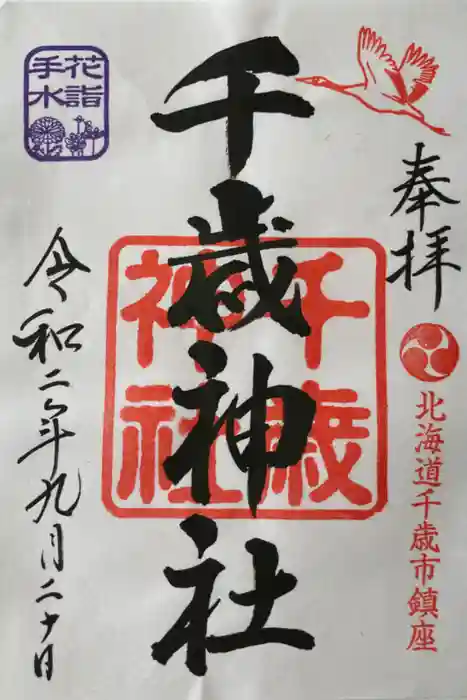 奉拝
北海道千歳市鎮座
千歳神社
千歳神社
花詣
手水
令和二年九月二十日